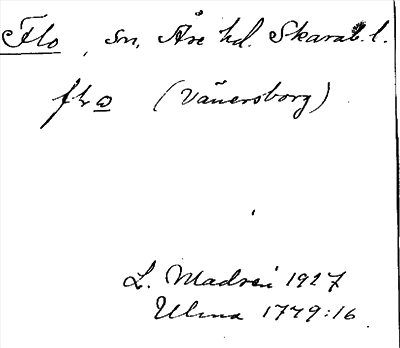 Flo, sn, Åse hd. Skarab. l.
(Vänersborg)
L. Madsén 1927
Ulma 1779:16